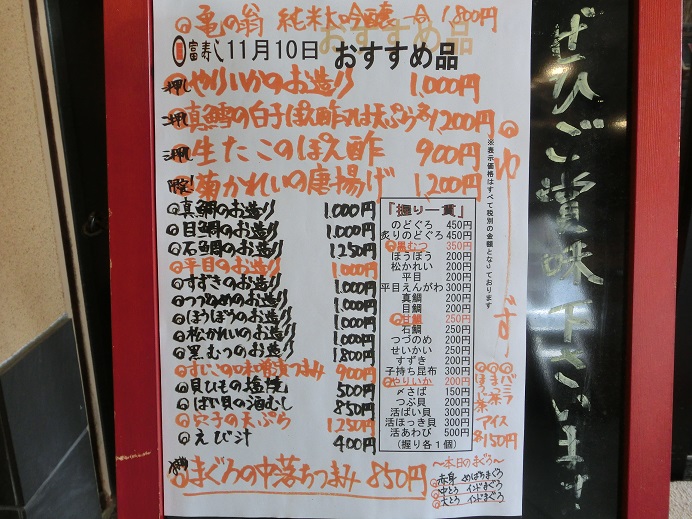 亀の翁 純米大吟醸 一合 1,800円
富寿し 11月10日 おすすめ品
押し やりいかのお造り 1,000円
押し 真鱈の白子ぽん酢又は天ぷら 1,200円
押し 生たこのぽん酢 900円
限定! 菊かれいの唐揚げ 1,200円
真鯛のお造り 1,000円
目鯛のお造り 1,000円
石鯛のお造り 1,250円
平目のお造り 1,000円
すずきのお造り 1,000円
つづのめのお造り 1,000円
ほうぼうのお造り 1,000円
松かれいのお造り 1,000円
黒むつのお造り 1,800円
すじこの味噌漬つまみ 900円
貝ひもの塩焼 500円
ばい貝の酒むし 850円
穴子の天ぷら 1,250円
えび汁 400円
まぐろの中落ちつまみ 850円
「握り一貫」
のどぐろ 450円
炙りのどぐろ 450円
黒むつ 350円
ほうぼう 200円
松かれい 200円
平目 200円
平目えんがわ 300円
真鯛 200円
目鯛 200円
甘鯛 250円
石鯛 250円
つづのめ 200円
せいかい 250円
すずき 200円
子持ち昆布 300円
やりいか 200円
〆さば 150円
つぶ貝 200円
活ばい貝 300円
活ほっき貝 300円
活あわび 500円
(握り各1個)
※表示価格はすべて税別の金額となっております
ゆず
バニラ
まっ茶
ほうじ茶
アイス
各150円
〜本日のまぐろ〜
赤身 めばちまぐろ
中とろ インドまぐろ
大とろ インドまぐろ
ぜひご賞味下さいませ